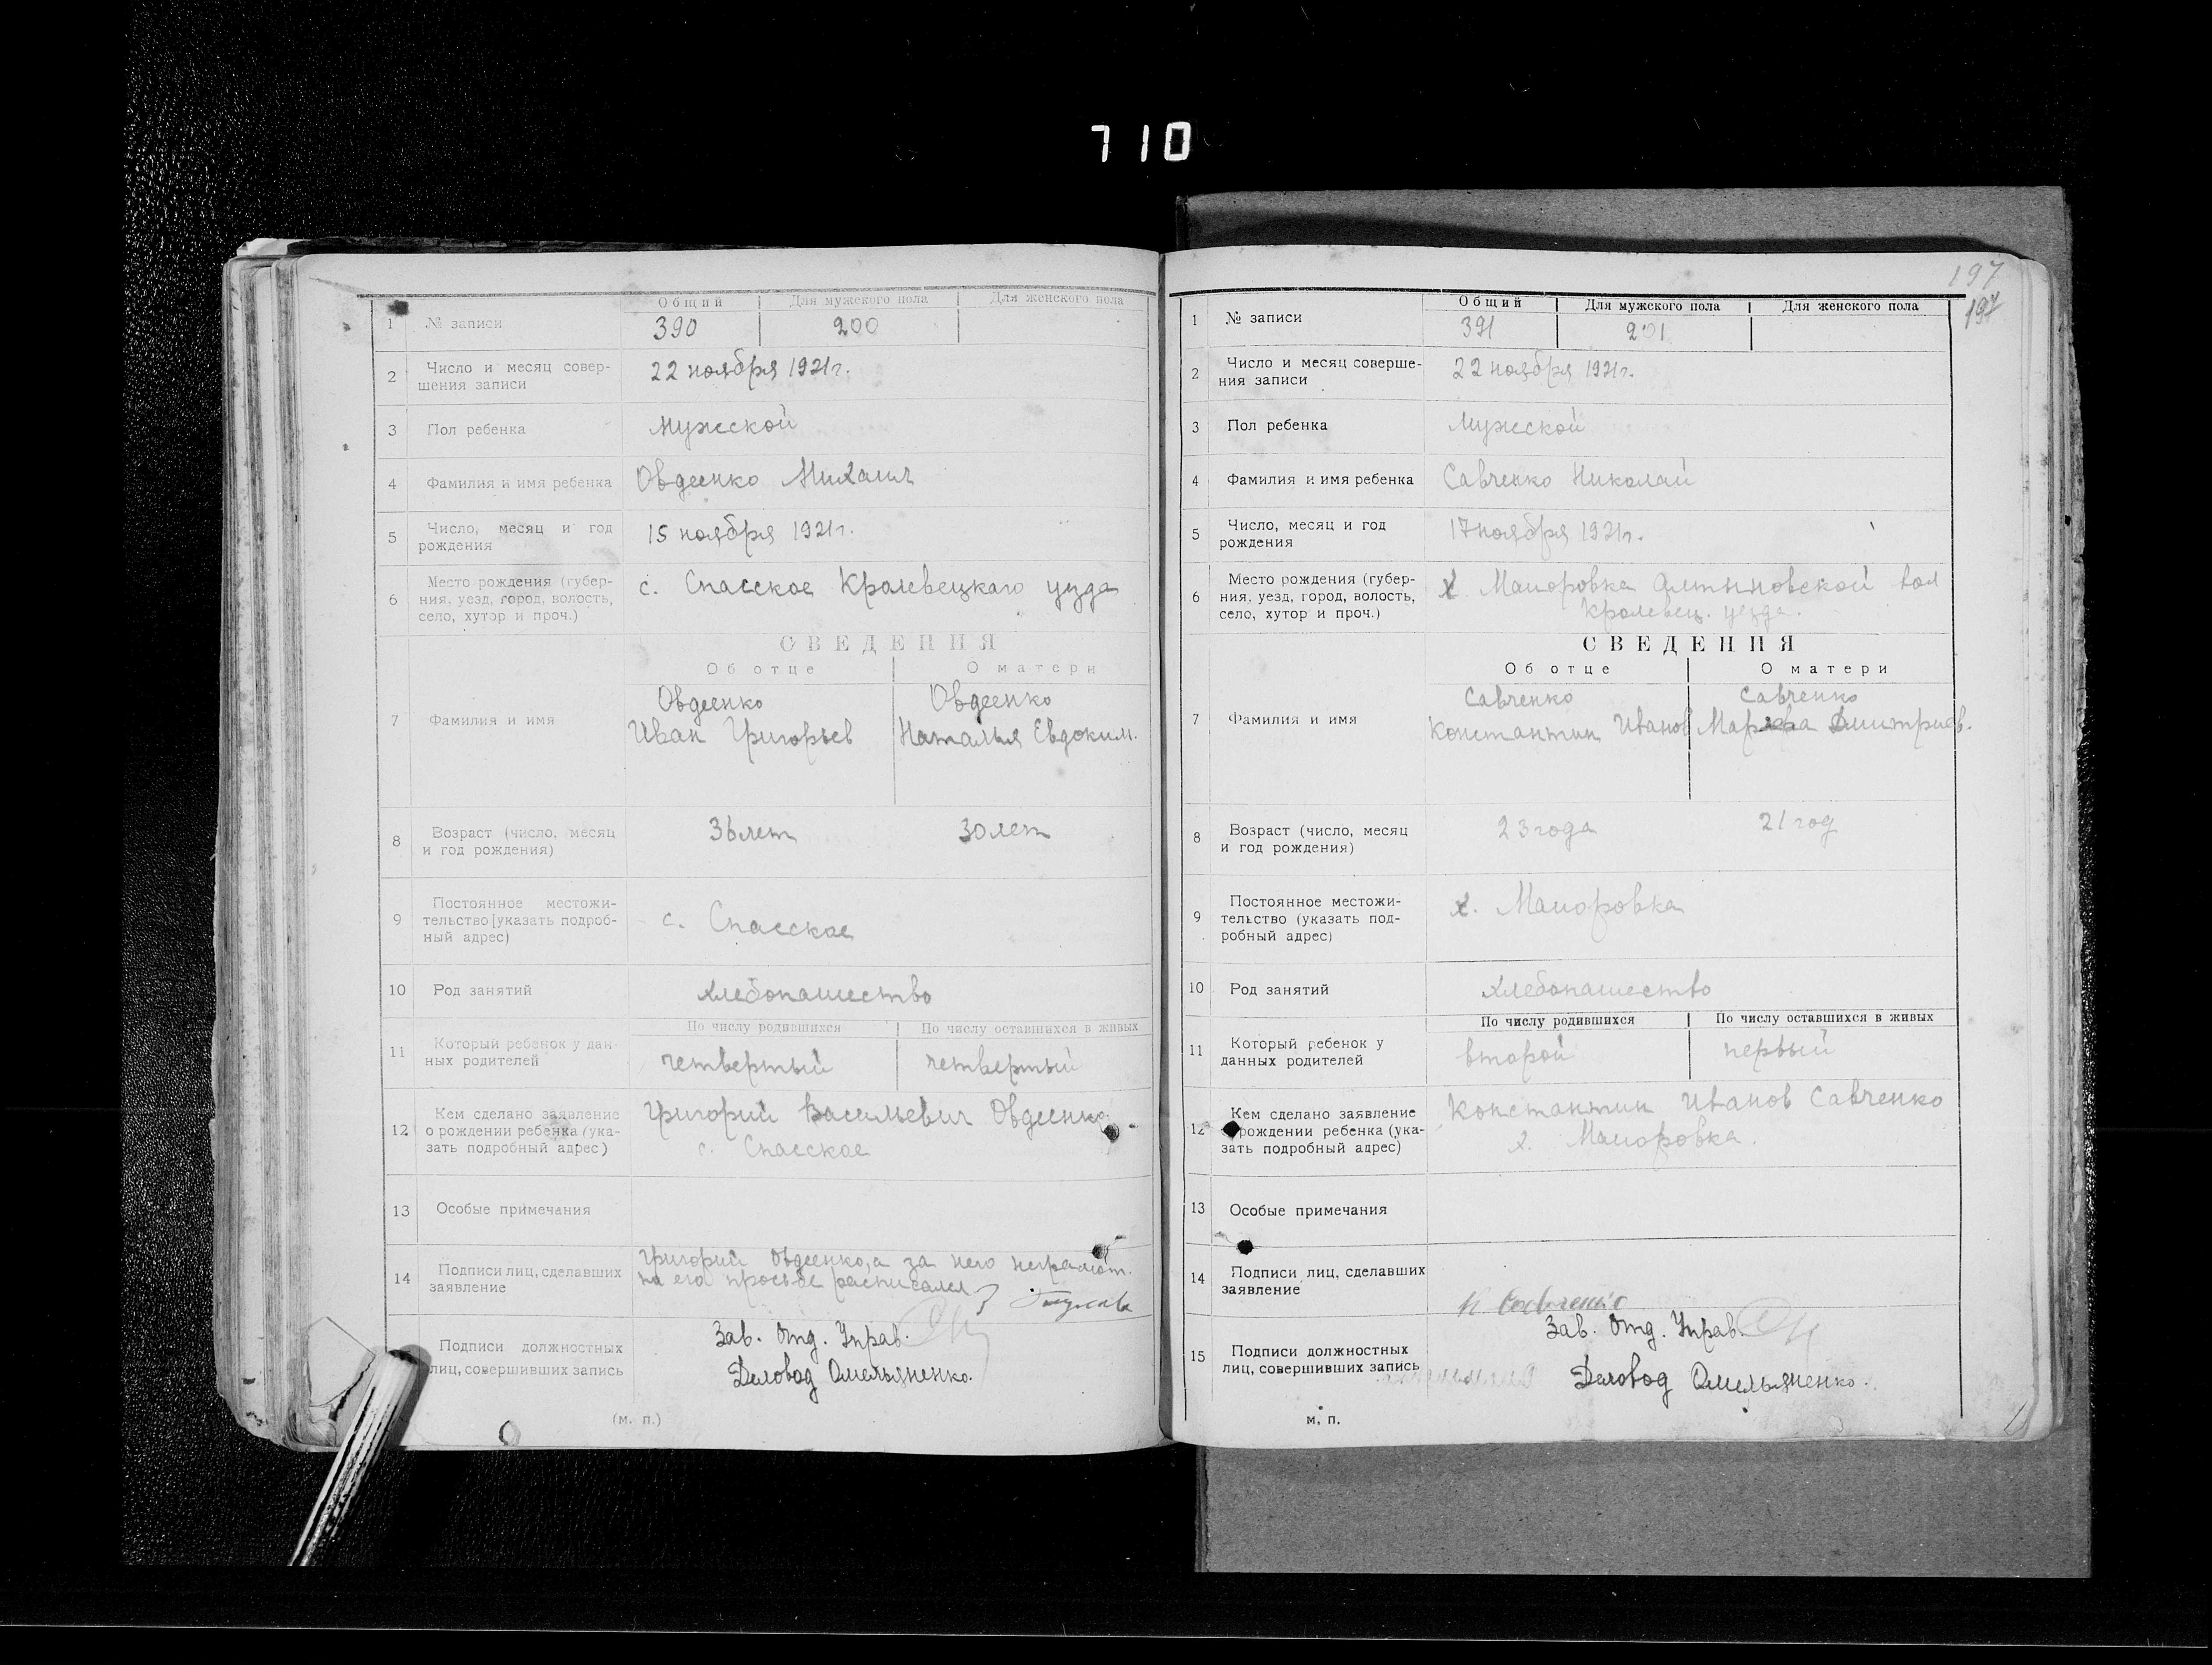 710
Общий Для мужского пола Для женского пола
1 № записи 390 200
2 Число и месяц совер-
шения записи 22 ноября 1921г.
3 Пол ребенка мужской
4 Фамилия и имя ребенка Овдеенко Михаил
5 Число, месяц и год
рождения 15 ноября 1921г.
6 Место рождения (губер-
ния, уезд, город, волость,
село, хутор и проч.) с. Спасское Кролевецкаго уезда
СВЕДЕНИЯ
Об отце О матери
7 Фамилия и имя
Овдеенко Овдеенко
Иван Григорьев Наталья Евдоким.
8 Возраст (число, месяц
и год рождения) 36 лет 30 лет
9 Постоянное местожи-
тельство (указать подроб-
ный адрес) с. Спасское
10 Род занятий хлебопашество
По числу родившихся По числу оставшихся в живых
11 Который ребенок у дан-
ных родителей четвертый четвертый
12 Кем сделано заявление
о рождении ребенка (ука-
зать подробный адрес)
Григорий Васильевич Овдеенко
с. Спасское
13 Особые примечания
14 Подписи лиц, сделавших
заявление
Григорий Овдеенко, а за него неграмот.
по его просьбе расписался
15 Подписи должностных
лиц, совершивших запись
Зав. Отд. Управ.
Деловод Омельяненко.
(м. п.)
197
197
Общий Для мужского пола Для женского пола
1 № записи 391 201
2 Число и месяц соверше-
ния записи 22 ноября 1921г.
3 Пол ребенка мужской
4 Фамилия и имя ребенка Савченко Николай
5 Число, месяц и год
рождения 17 ноября 1921г.
6 Место рождения (губер-
ния, уезд, город, волость,
село, хутор и проч.)
х. Маиоровка Алтыновской вол
Кролевец. уезда.
СВЕДЕНИЯ
Об отце О матери
7 Фамилия и имя
Савченко Савченко
Константин Иванов Дмитриев.
8 Возраст (число, месяц
и год рождения) 23 года 21 год
9 Постоянное местожи-
тельство (указать под-
робный адрес) х. Маиоровка
10 Род занятий хлебопашество
По числу родившихся По числу оставшихся в живых
11 Который ребенок у
данных родителей второй первый
12 Кем сделано заявление
рождении ребенка (ука-
зать подробный адрес)
Константин Иванов Савченко
х. Маиоровка.
13 Особые примечания
14 Подписи лиц, сделавших
заявление
К Савченко
15 Подписи должностных
лиц, совершивших запись
Зав. Отд. Управ.
Деловод Омельяненко.
м. п.